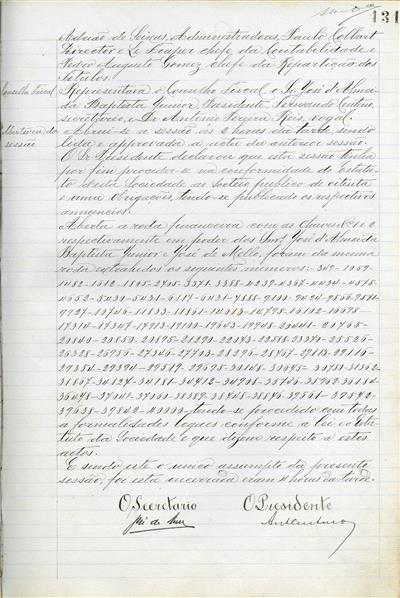 131
Adrião de Seixas, Administradores, Paulo
Director e Le chefe da Contabilidade e
Pedro Augusto Gomez chefe da Repartição dos
Titulos.
Conselho Fiscal
Representava o Conselho Fiscal o Sr. José d'Almei
da Baptista Junior Presidente, Fernando
secretario, e Dr. Antonio Pereira Reis, vogal.
Abertura da
sessão
Abriu-se a sessão ás 2 horas da tarde, sendo
lida e approvada a acta da anterior sessão.
O Sr. Presidente declarou que esta sessão tinha
por fim proceder-se na conformidade do Estatu
to d'esta Sociedade ao sorteio publico de oitenta
e uma Obrigações, tendo-se publicado os respectivos
annuncios.
Aberta a roda financeira com as chaves
respectivamente em poder dos Snrs. José d'Almeida
Baptista Junior e José de Mello, foram da mesma
roda extrahidos os seguintes numeros: 349-1059-
1482-1612-1805-2705-3371-3388-4239-4367-4434-4578-
4652-5430-5431-6187-6431-7888-9100-9424-9566-9871-
9927-10746-11833-11861-14013-14795-16102-16695-
17314-17347-17913-19100-19643-19948-20441-20765-
20840-20850-20895-21290-22173-22588-23370-25526-
26328-26956-27346-27703-28296-28467-29113-29116-
29354-29394-29519-29695-30148-30695-30781-31362
31867-34127-34181-34912-34908-35746-35962-36184
36498-37041-37060-38389-38408-38876-39561-39572-
39638-39842-40000-tendo-se procedido com todas
a formalidades legaes conforme a lei e o Esta-
tuto da Sociedade e que dizem respeito a estes
actos.
E sendo este o unico assumpto da presente
sessão, foi esta encerrada eram 4 horas da tarde.
O Secretario O Presidente